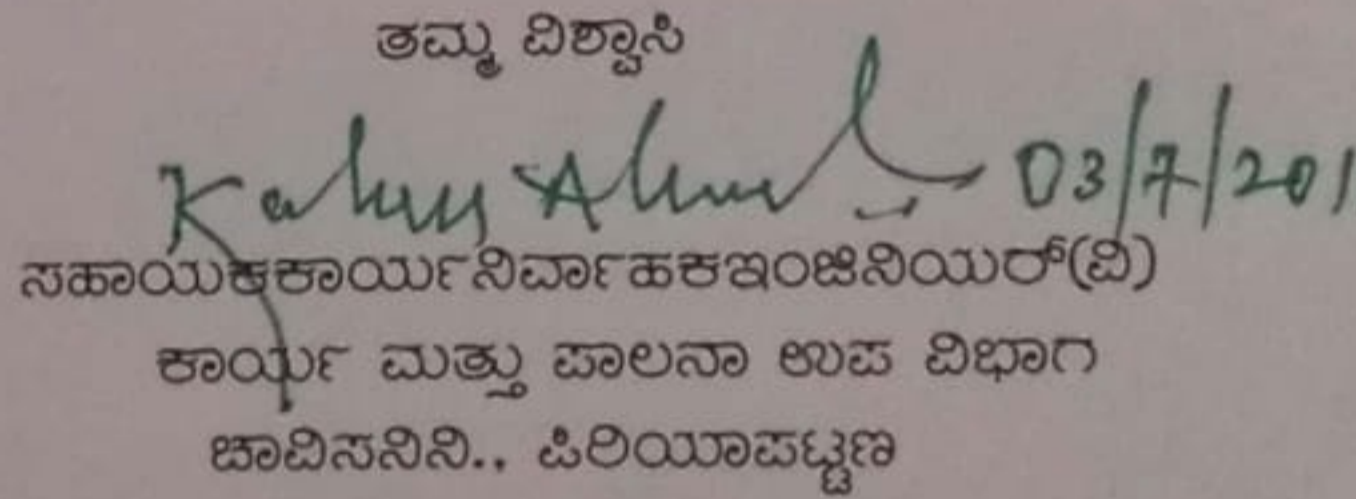 ತಮ್ಮ ವಿಶ್ವಾಸಿ
03/7/201
ಸಹಾಯಕಕಾರ್ಯನಿರ್ವಾಹಕಇಂಜಿನಿಯರ್(ವಿ)
ಕಾರ್ಯ ಮತ್ತು ಪಾಲನಾ ಉಪ ವಿಭಾಗ
ಚಾವಿಸನಿನಿ., ಪಿರಿಯಾಪಟ್ಟಣ